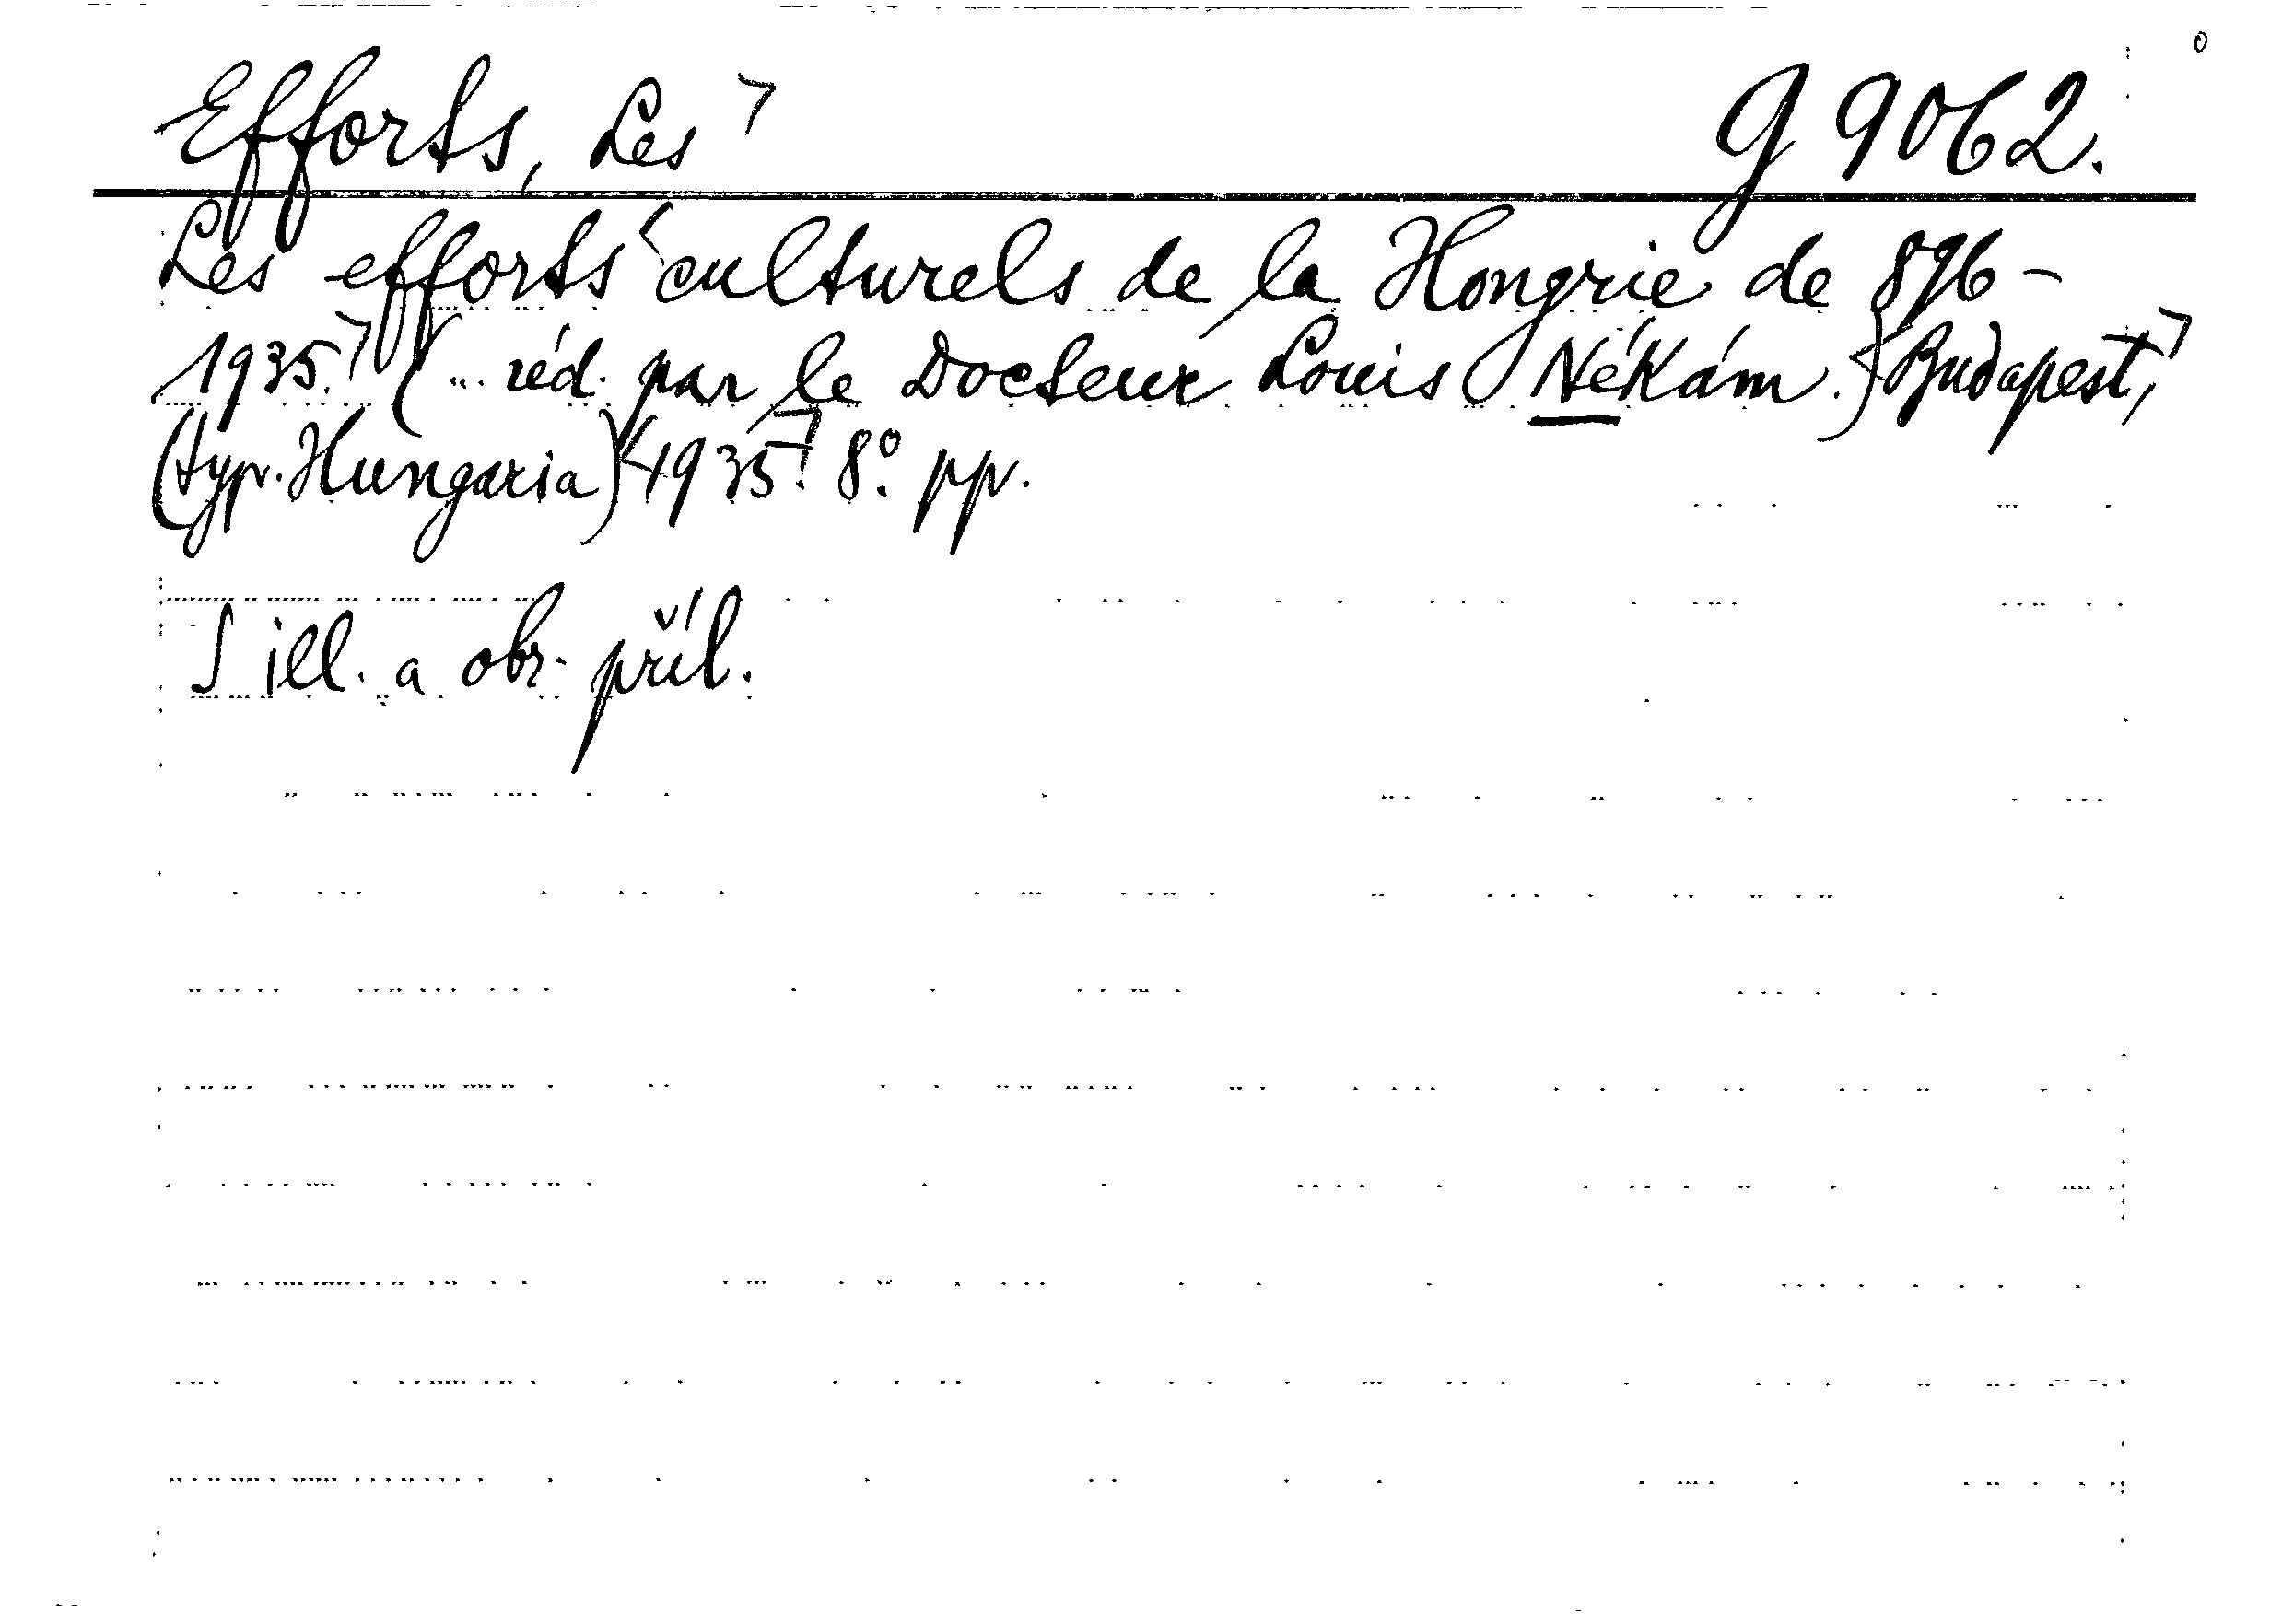 Efforts, Les g 9062.
Les efforts culturels de la Hongrie de 896-
1935. (... réd. par le Docteur Louis Nékám.) Budapest,
(typ. Hungaria) 1935. 8° pp.
S ill. a obr. příl.